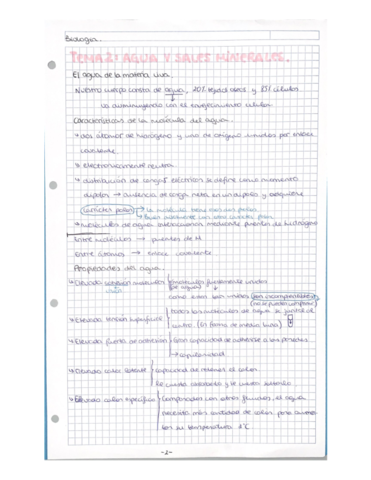 Biología.
TEMA 2: AGUA Y SALES MINERALES.
El agua de la materia viva.
Nuestro cuerpo consta de agua, 20% tejido óseo y 85% células
va disminuyendo con el envejecimiento celular.
Características de la molécula del agua.
dos átomos de hidrógeno y uno de oxígeno unidos por enlace
covalente.
electrónicamente neutra.
distribución de cargas eléctricas se define como momento
dipolar → ausencia de carga neta en un dipolo y adquiere
carácter polar la molécula
moléculas de agua interaccionan mediante puentes de hidrógeno
Entre moléculas → puentes de H
Entre átomos → enlace covalente.
Propiedades del agua.
Elevada cohesión molecular moléculas fuertemente unidas
(de agua)
como están tan unidas son incompresibles
Elevada tensión superficial todas las moléculas de agua se juntan al
centro. (En forma de media luna)
Elevada fuerza de adhesión gran capacidad de adherirse a las paredes
→ capilaridad
Elevado calor latente capacidad de retener el calor.
le cuesta calentarlo y le cuesta soltarlo
Elevado calor específico comparado con otros fluidos, el agua
necesita más cantidad de calor para aumen
tar su temperatura 1°C
-1-